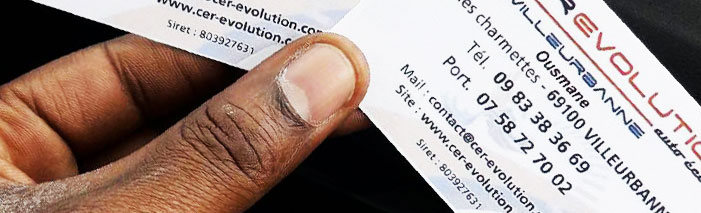 cer-evolution.com
www.cer-evolution.com
Siret : 803927631
REVOLUTIO
VILLEURBANNE
auto éc
Ousmane
es charmettes - 69100 VILLEURBANN
Tél. 09 83 38 36 69
Port. 07 58 72 70 02
Mail : contact@cer-evolution.
Site : www.cer-evolution.
Siret : 803927631